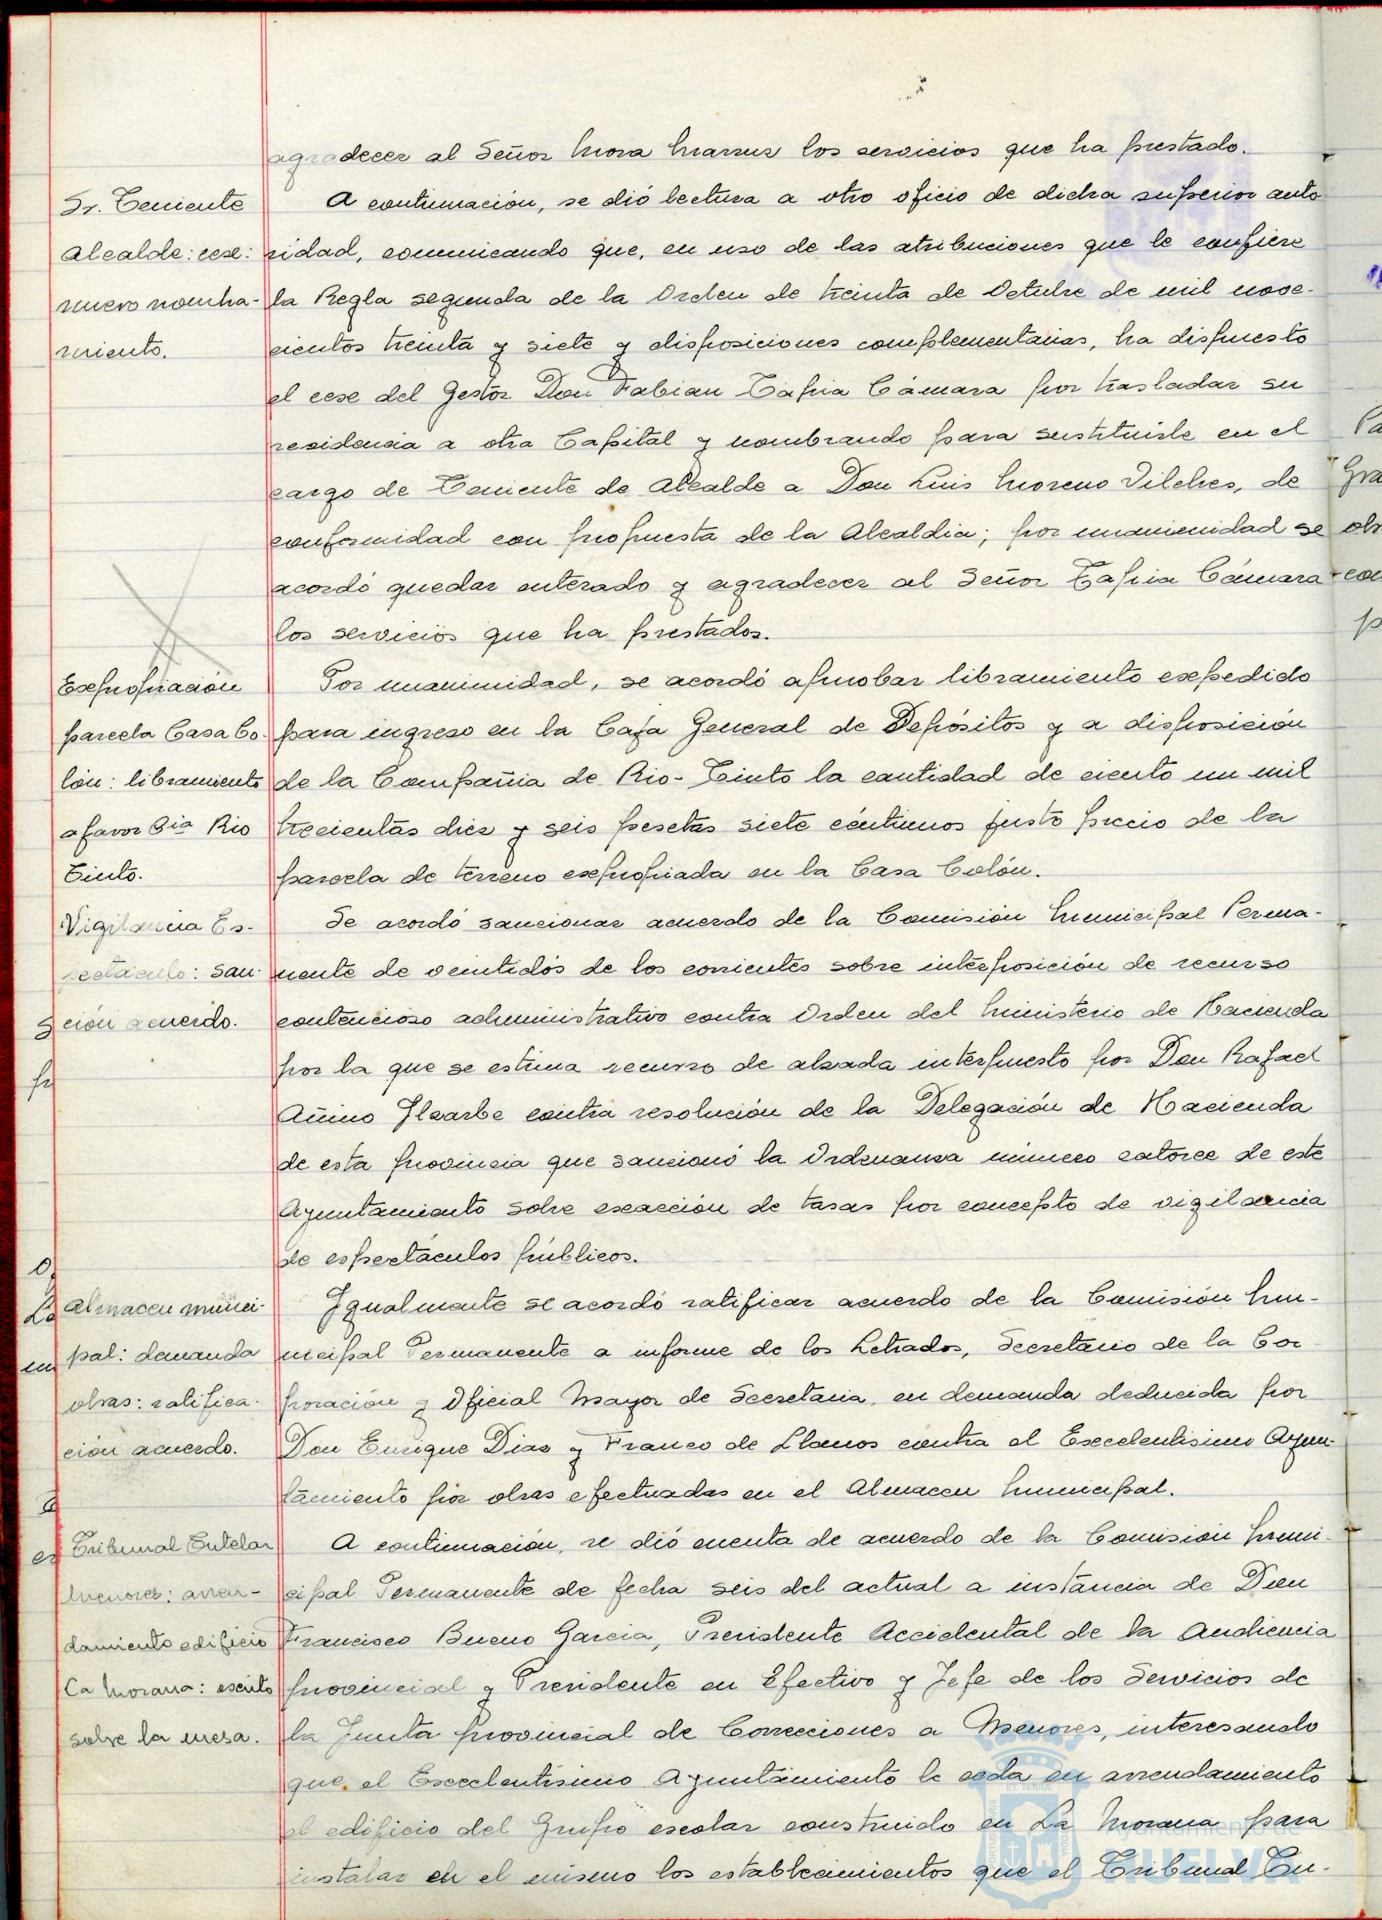 agradecer al Señor Mora Marrus los servicios que ha prestado.
Sr. Teniente
Alcalde: cese:
nuevo nombra-
miento.
A continuación, se dió lectura a otro oficio de dicha superior auto
ridad, comunicando que, en uso de las atribuciones que le confiere
la Regla segunda de la Orden de treinta de Octubre de mil nove-
cientos treinta y siete y disposiciones complementarias, ha dispuesto
el cese del Gestor Don Fabian Tapia Cámara por trasladar su
residencia a otra Capital y nombrando para sustituirle en el
cargo de Teniente de Alcalde a Don Luis Moreno Vilches, de
conformidad con propuesta de la Alcaldia; por unanimidad se
acordó quedar enterado y agradecer al Señor Tapia Cámara
los servicios que ha prestados.
Expropiación
parcela Casa Co-
lón: libramiento
a favor Cia Rio
Tinto.
Por unanimidad, se acordó aprobar libramiento expedido
para ingreso en la Caja General de Depósitos y a disposición
de la Compañia de Rio-Tinto la cantidad de ciento un mil
trecientas diez y seis pesetas siete céntimos justo precio de la
parcela de terreno expropiada en la Casa Colón.
Vigilancia Es-
pectáculo: san-
ción acuerdo.
Se acordó sancionar acuerdo de la Comisión Municipal Perma-
nente de veintidós de los corrientes sobre interposición de recurso
contencioso administrativo contra Orden del Ministerio de Hacienda
por la que se estima recurso de alzada interpuesto por Don Rafael
Añino Ilzarbe contra resolución de la Delegación de Hacienda
de esta provincia que sancionó la Ordenanza número catorce de este
Ayuntamiento sobre exacción de tasas por concepto de vigilancia
de espectáculos públicos.
Almacen munici-
pal: demanda
obras: ratifica-
ción acuerdo.
Igualmente se acordó ratificar acuerdo de la Comisión Mu-
nicipal Permanente a informe de los Letrados, Secretario de la Cor
poración y Oficial Mayor de Secretaria, en demanda deducida por
Don Enrique Diaz y Franco de Llanos contra el Excelentisimo Ayun-
tamiento por obras efectuadas en el Almacen Municipal.
Tribunal Tutelar
Menores: arren-
damiento edificio
La Morana: escrito
sobre la mesa.
A continuación, se dió cuenta de acuerdo de la Comisión Muni-
cipal Permanente de fecha seis del actual a instancia de Don
Francisco Bueno Garcia, Presidente Accidental de la Audiencia
provincial y Presidente en Efectivo y Jefe de los Servicios de
la Junta provincial de Correcciones a Menores, interesando
que el Excelentísimo Ayuntamiento le ceda en arrendamiento
el edificio del Grupo escolar construido en La Morana para
instalar en el mismo los establecimientos que el Tribunal Tu-
Ayuntamiento de
HUELVA